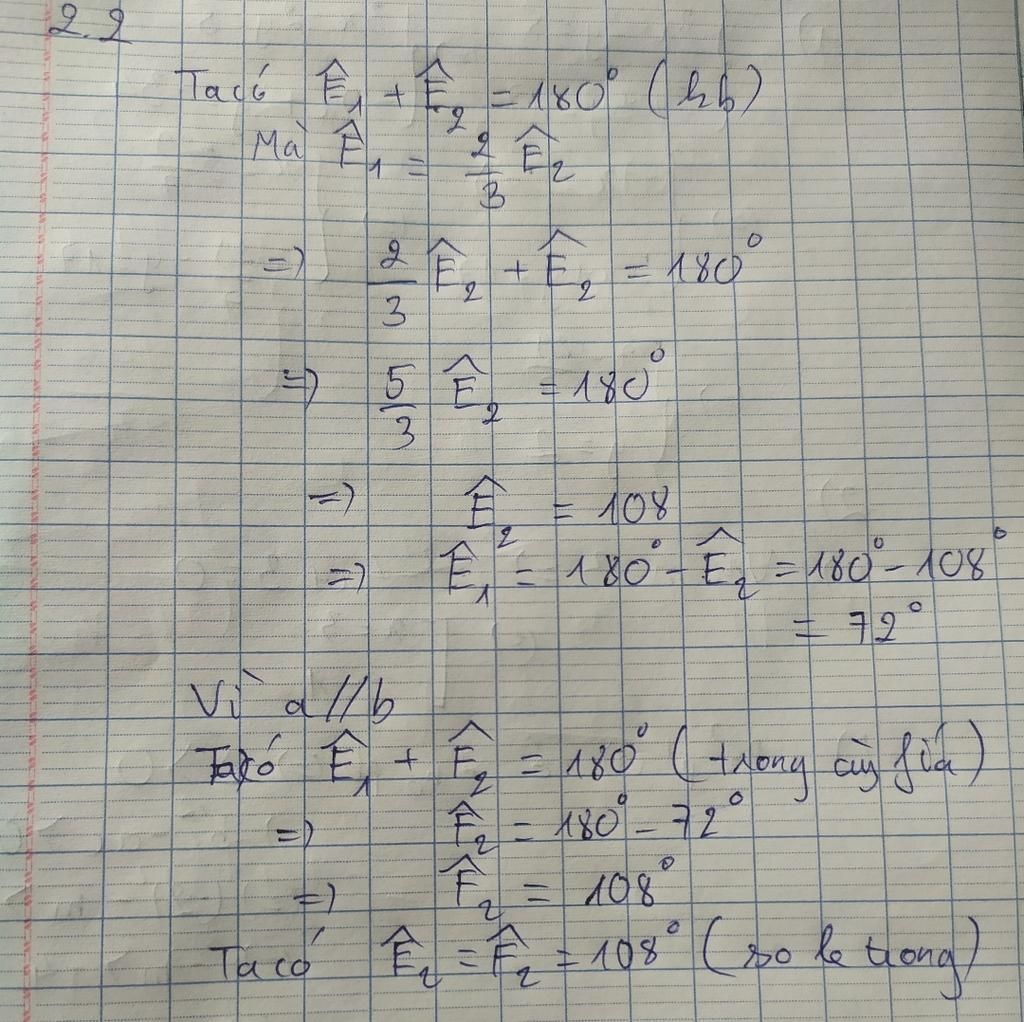 2.2
Ta có Ê₁ + Ê₂ = 180° (kb)
Mà Ê₁ = 2/3 Ê₂
=> 2/3 Ê₂ + Ê₂ = 180°
=> 5/3 Ê₂ = 180°
=> Ê₂ = 108
=> Ê₁ = 180° - Ê₂ = 180° - 108°
= 72°
Vì a // b
Ta có Ê₁ + F̂₂ = 180° (trong cùng fía)
=> F̂₂ = 180° - 72°
=> F̂₂ = 108°
Ta có Ê₂ = F̂₂ = 108° (so le trong)